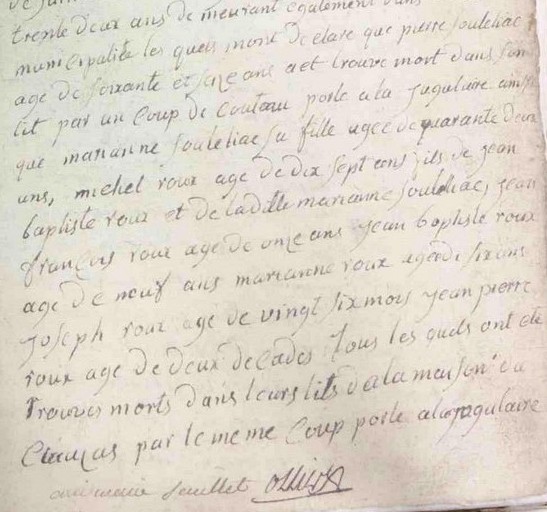 trente deux ans demeurant egalement dans
municipalite les quels mont declare que pierre souleliac
age de soixante et seize ans aett trouve mort dans son
lit par un Coup de Couteau porte ala jugulaire ainsi
que marianne souleliac sa fille agee de quarante deux
ans, michel roux age de dix sept ans fils de jean
baptiste roux et de ladille marianne souleliac, jean
françois roux age de onze ans jean baptiste roux
age de neuf ans marianne roux agee de six ans
joseph roux age de vingt six mois jean pierre
roux age de deux decades tous les quels ont ete
trouves morts dans leurs lits de la meison du
par le meme Coup porte ala jugulaire